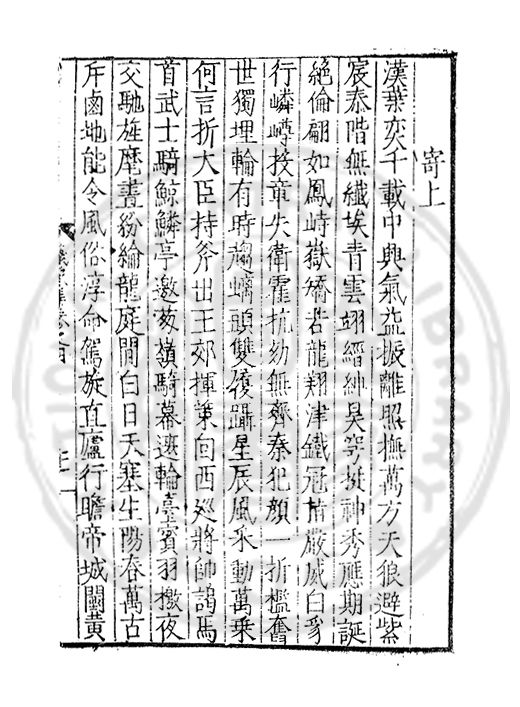 寄上
漢葉奕千載中興氣益振離照撫萬方天狼避紫
宸泰階無纖埃青雲翊縉紳昊穹挺神秀應期誕
絶倫翩如鳳峙嶽矯若龍翔津鐵冠榰嚴威白豸
行嶙嶟投章失衛霍抗劾無齊秦犯顏一折檻奮
世獨埋輪有時趨螭頭雙履躡星辰風采動萬乗
何言折大臣持斧出王郊揮策向西廵將帥謁馬
首武士騎鯨鱗亭邀葱嶺騎幕邊輪臺賓羽檄夜
交馳旌麾晝紛綸龍庭閒白日天塞生陽春萬古
斥鹵地能令風俗淳命駕旋直廬行瞻帝城闉黄